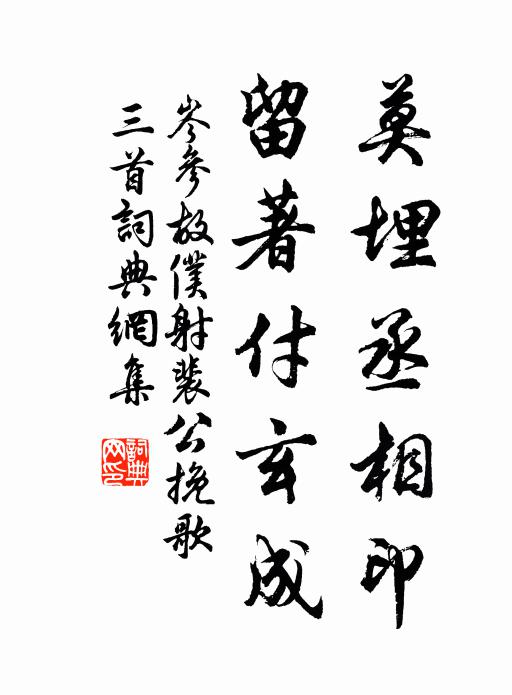 莫埋丞相印
留著付玄成
岑參故僕射裴公挽歌
三首詞典網集
詞典
网印